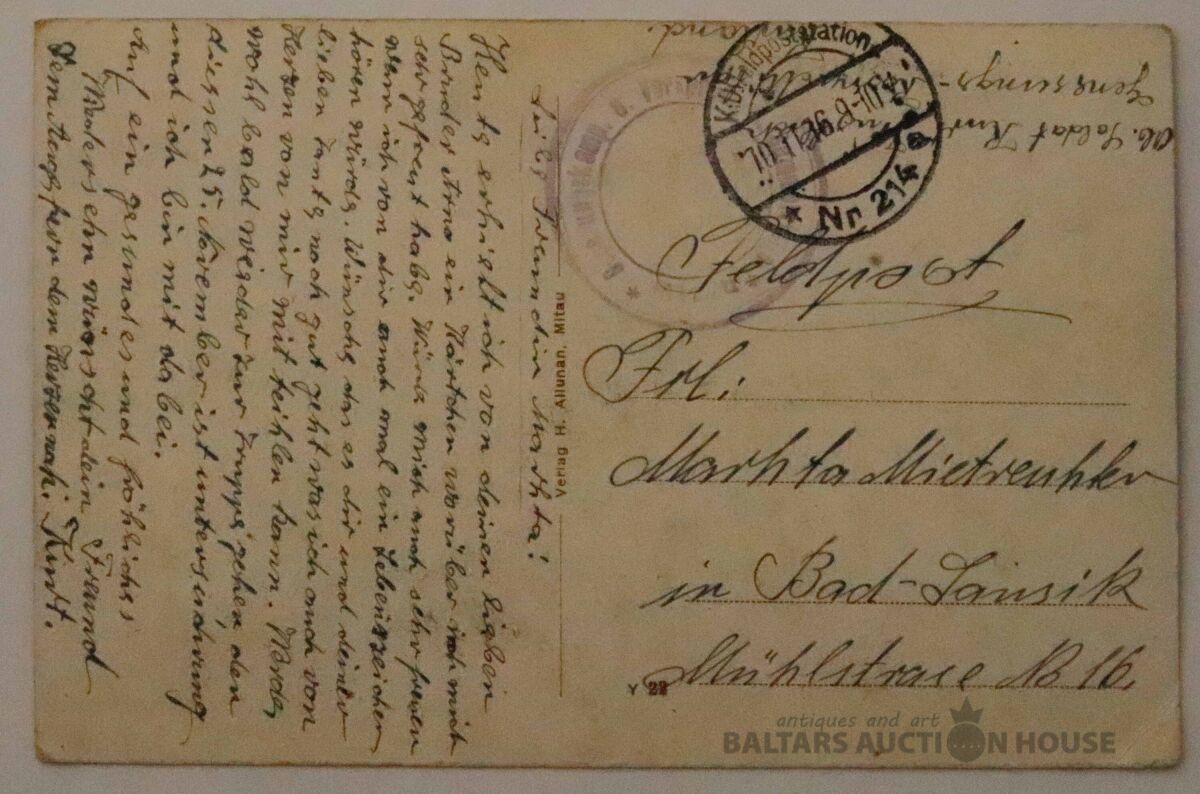 Liebe Freundin Martha!
Heute erhielt ich von deinen lieben
Bruder Arno ein Kärtchen worüber ich mich
sehr gefreut habe. Würde mich auch sehr freuen
wenn ich von dir auch mal ein Lebenszeichen
hören würde. Wünsche das es dir und deiner
lieben Tante noch gut geht was ich auch von
Herzen von mir mit teihlen kann. Werde
wohl bald wieder zur Truppe gehen den
diessen 25. November ist untersuchung
und ich bin mit dabei.
Auf ein gesundes und fröhliches
Wiedersehn wünscht dein Freund
dem Auge fern dem Herzen nah. Kurt.
Verlag H. Allunan, Mitau
Ab. Soldat Kurt
Genesungs-
K.D. Feldpoststation
* Nr. 214 a
Feldpost
Frl:
Marhta Mietreuhker
in Bad-Lausik
Mühlstrase No 16.
Y 22
antiques and art
BALTARS AUCTION HOUSE